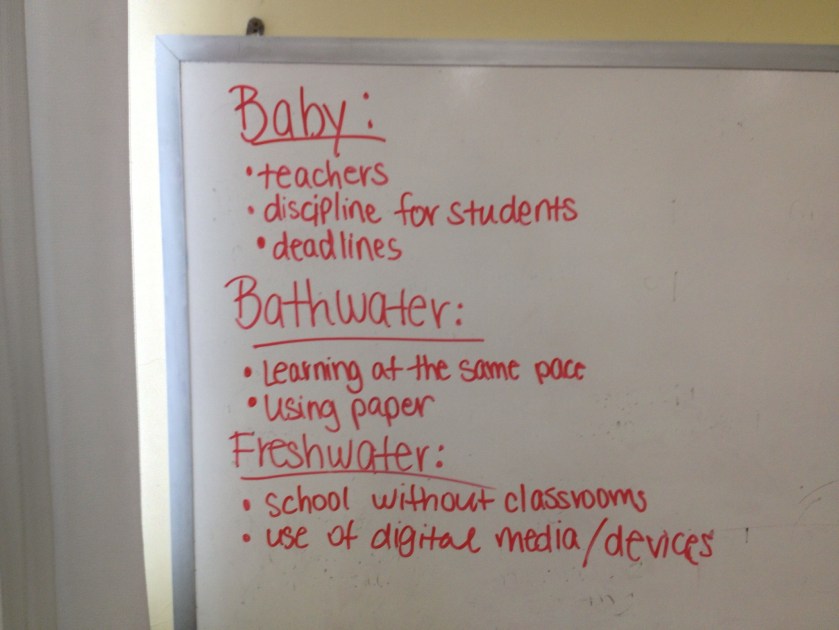 Baby:
• teachers
• discipline for students
• deadlines
Bathwater:
• Learning at the same pace
• Using paper
Freshwater:
• school without classrooms
• use of digital media/devices